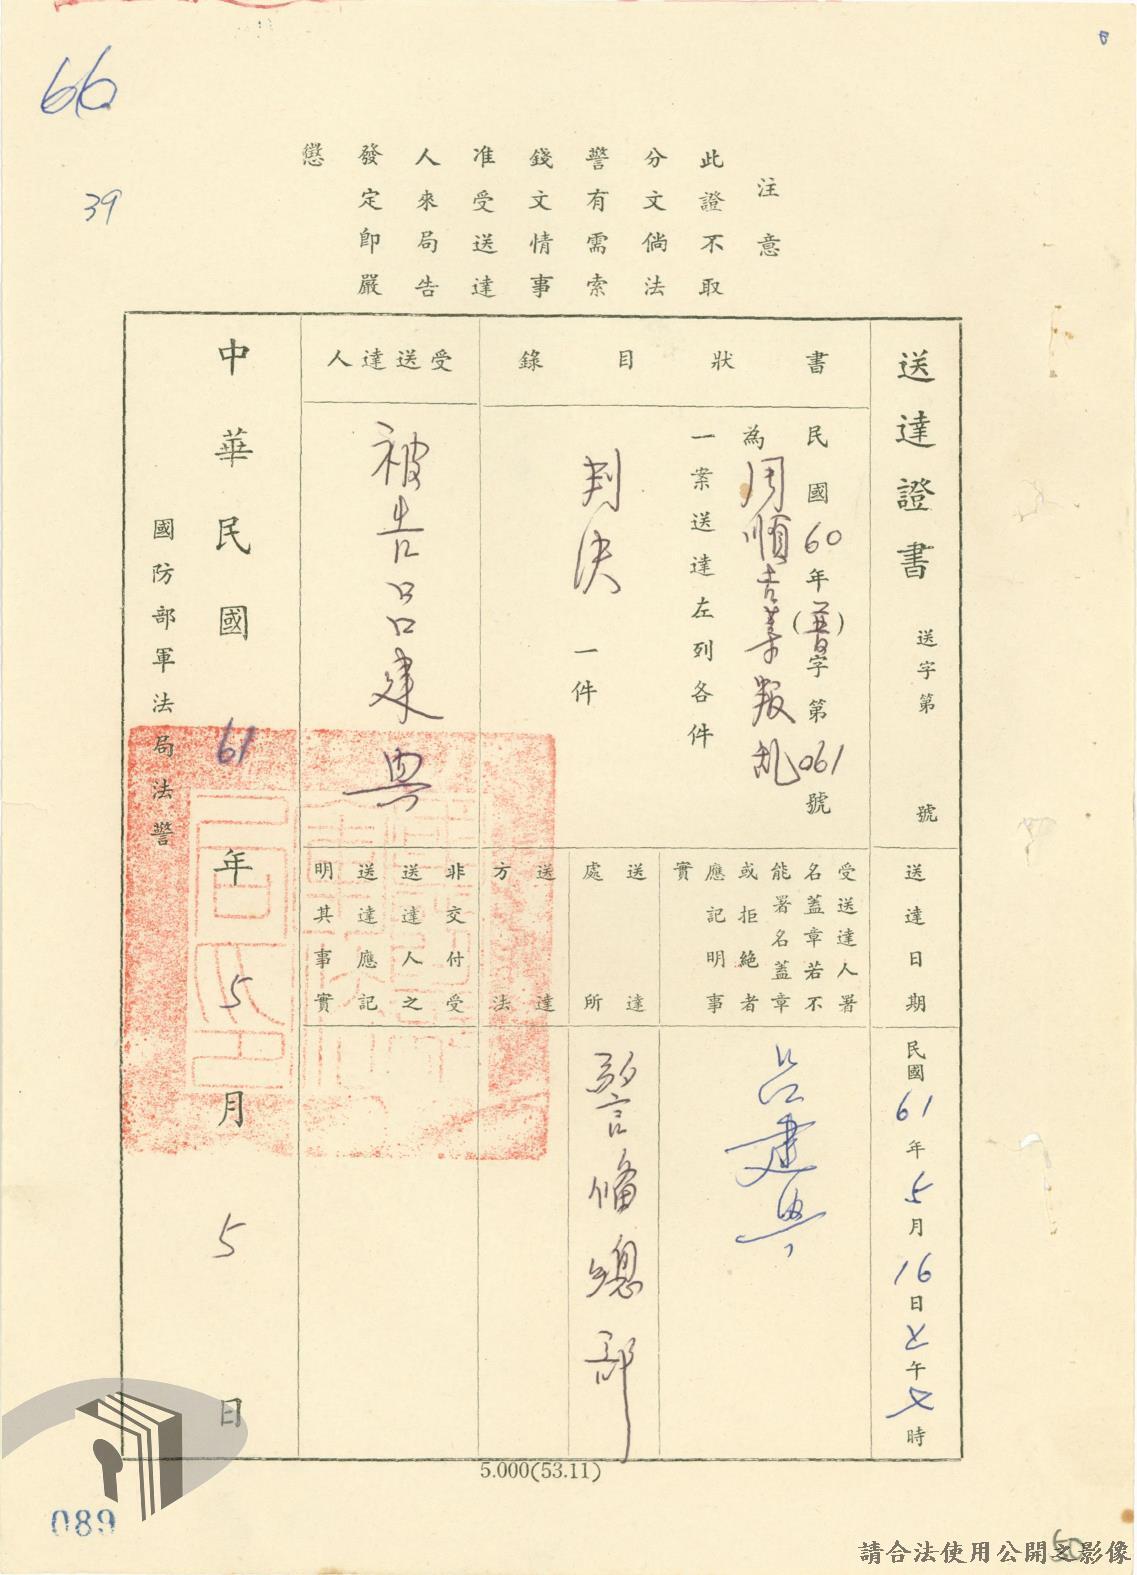 66
39
注意
此證不取
分文倘法
警有需索
錢文情事
准受送達
人來局告
發定即嚴
懲
送達證書　送字第　號
書狀目錄
民國60年(普)字第061號
為周順吉等叛乱
一案送達左列各件
判決一件
受送達人
被告呂建興
送達日期
民國61年5月16日上午 時
受送達人署
名蓋章若不
能署名蓋章
或拒絕者
應記明事
實
呂建興
送達處所
警備總部
送達方法
非交付受
送達人之
送達應記
明其事實
中華民國61年5月5日
國防部軍法局法警
5.000(53.11)
089
60
請合法使用公開之影像